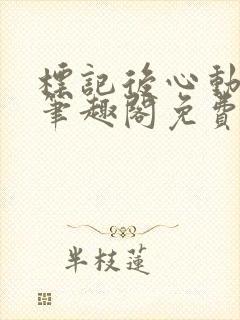 標記後心動
筆趣閣免費
半枝蓮